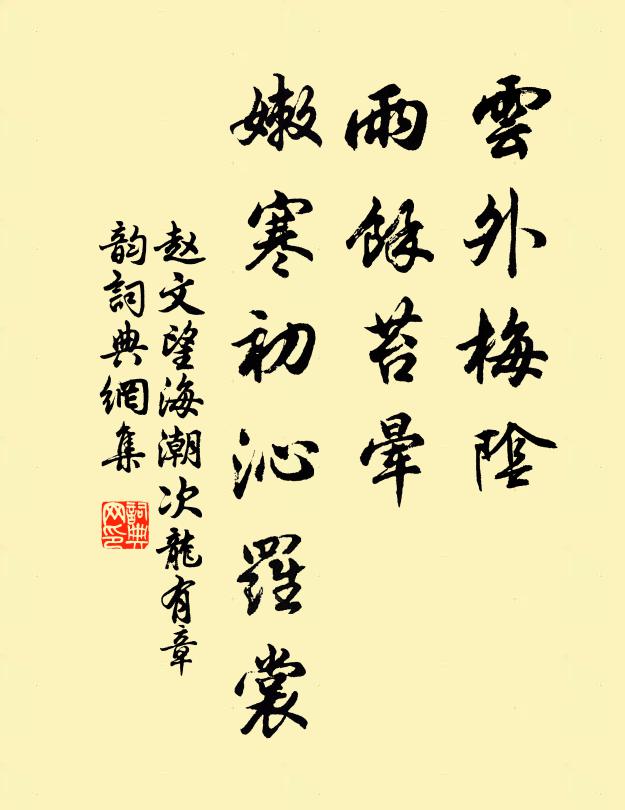 雲外梅陰
雨餘苔暈
嫩寒初沁羅裳
赵文望海潮次龍有章
韵詞典網集
詞典网印